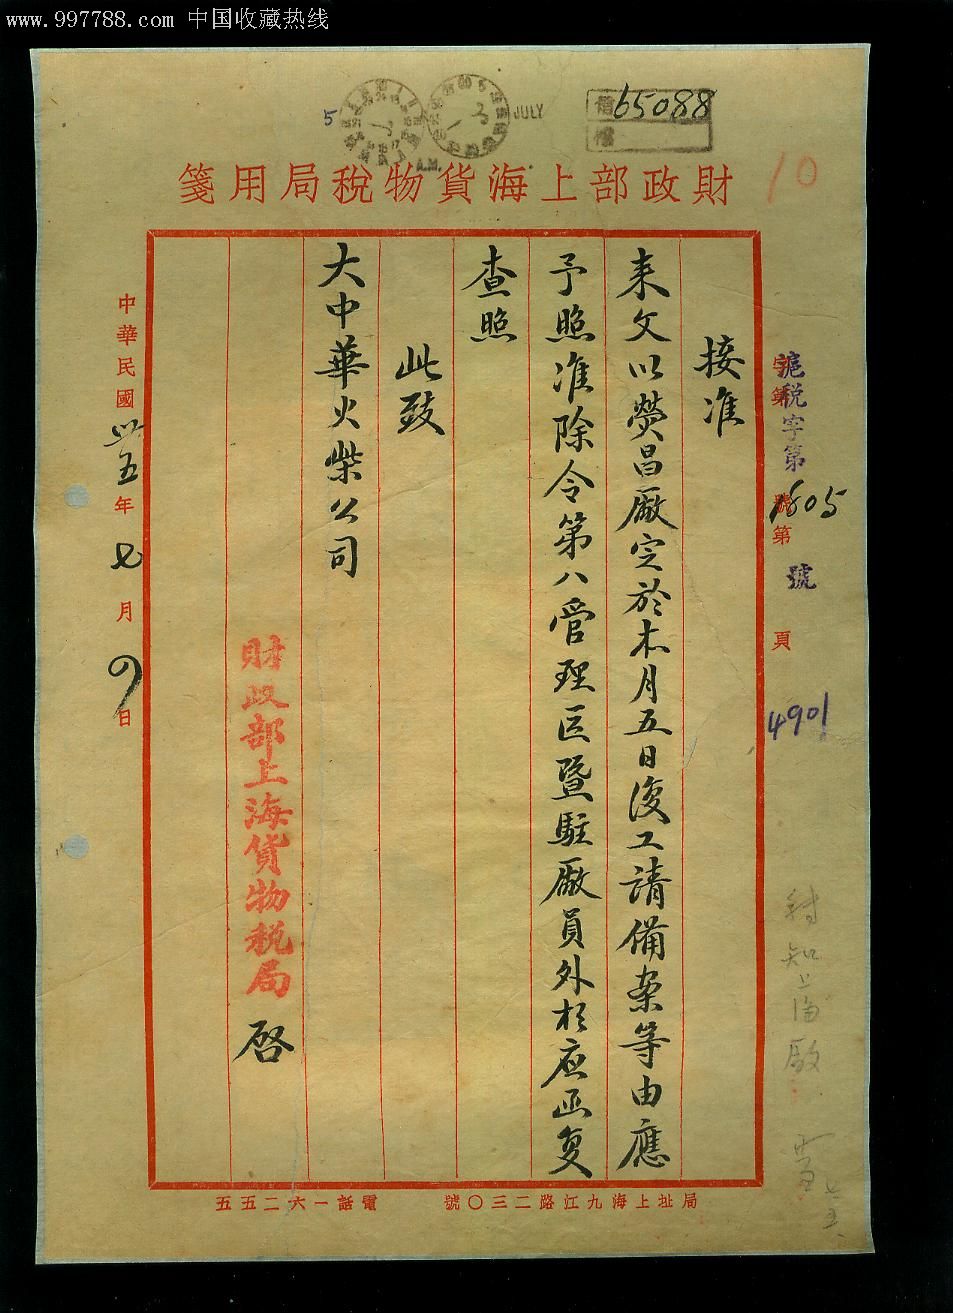 www.997788.com 中国收藏热线
5
JULY
A.M.
65088
10
財政部上海貨物稅局用箋
滬稅字第 號
字第 號第 頁
1605
4901
接准
来文以熒昌廠定於本月五日復工請備案等由應
予照准除令第八管理区暨駐廠員外相应函复
查照
此致
大中華火柴公司
財政部上海貨物税局 啓
中華民國卅五年七月9日
局址上海九江路二三〇號 電話一六二五五